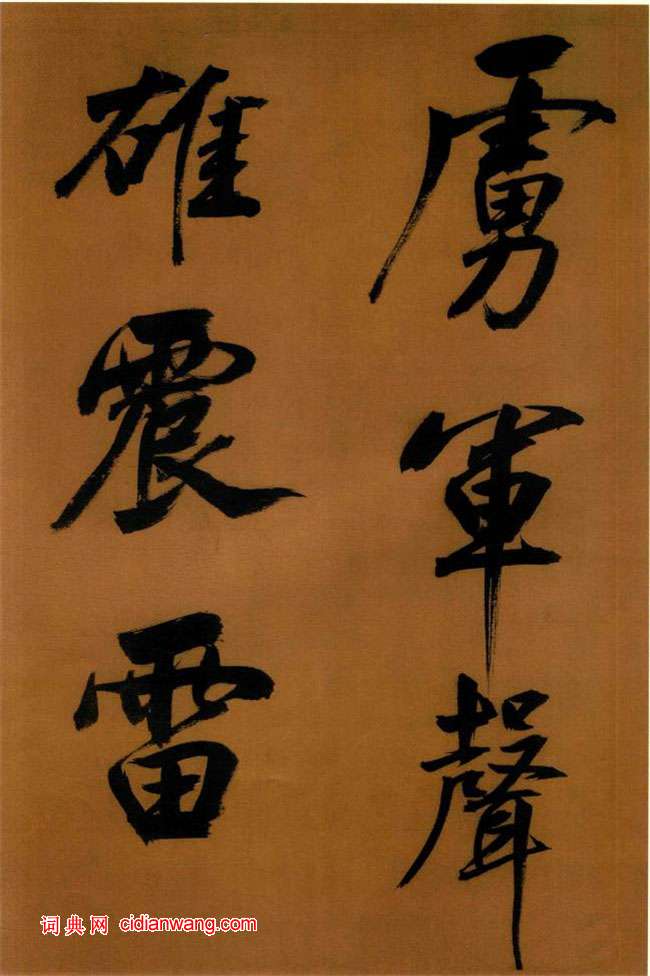 虜軍聲
雄震雷
词典网 cidianwang.com